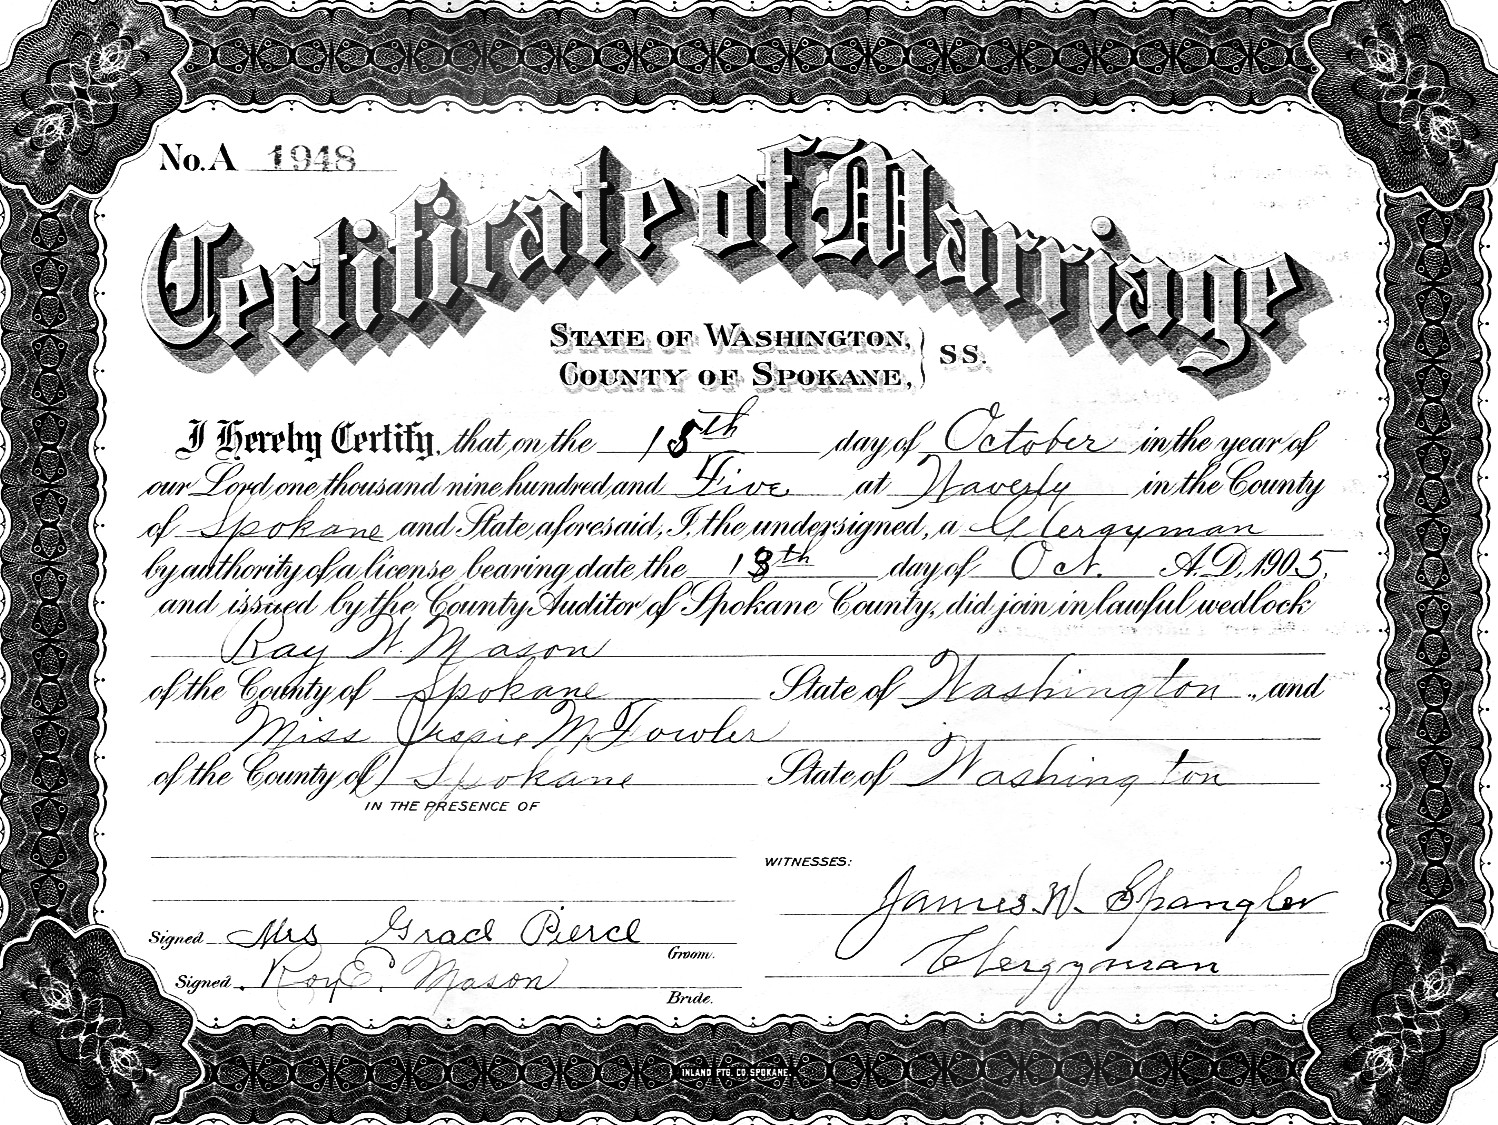 No. A 1948
Certificate of Marriage
STATE OF WASHINGTON, } SS.
COUNTY OF SPOKANE,
I Hereby Certify, that on the 15th day of October in the year of
our Lord one thousand nine hundred and Five at Waverly in the County
of Spokane and State aforesaid, I, the undersigned, a Clergyman
by authority of a license bearing date the 13th day of Oct. A.D. 1905,
and issued by the County Auditor of Spokane County, did join in lawful wedlock
Ray W. Mason
of the County of Spokane State of Washington, and
Miss Jessie M Fowler
of the County of Spokane State of Washington
IN THE PRESENCE OF
WITNESSES:
James W. Spangler
Signed Mrs Grace Pierce
Groom.
Clergyman
Signed Roy E. Mason
Bride.
INLAND PTG. CO. SPOKANE.